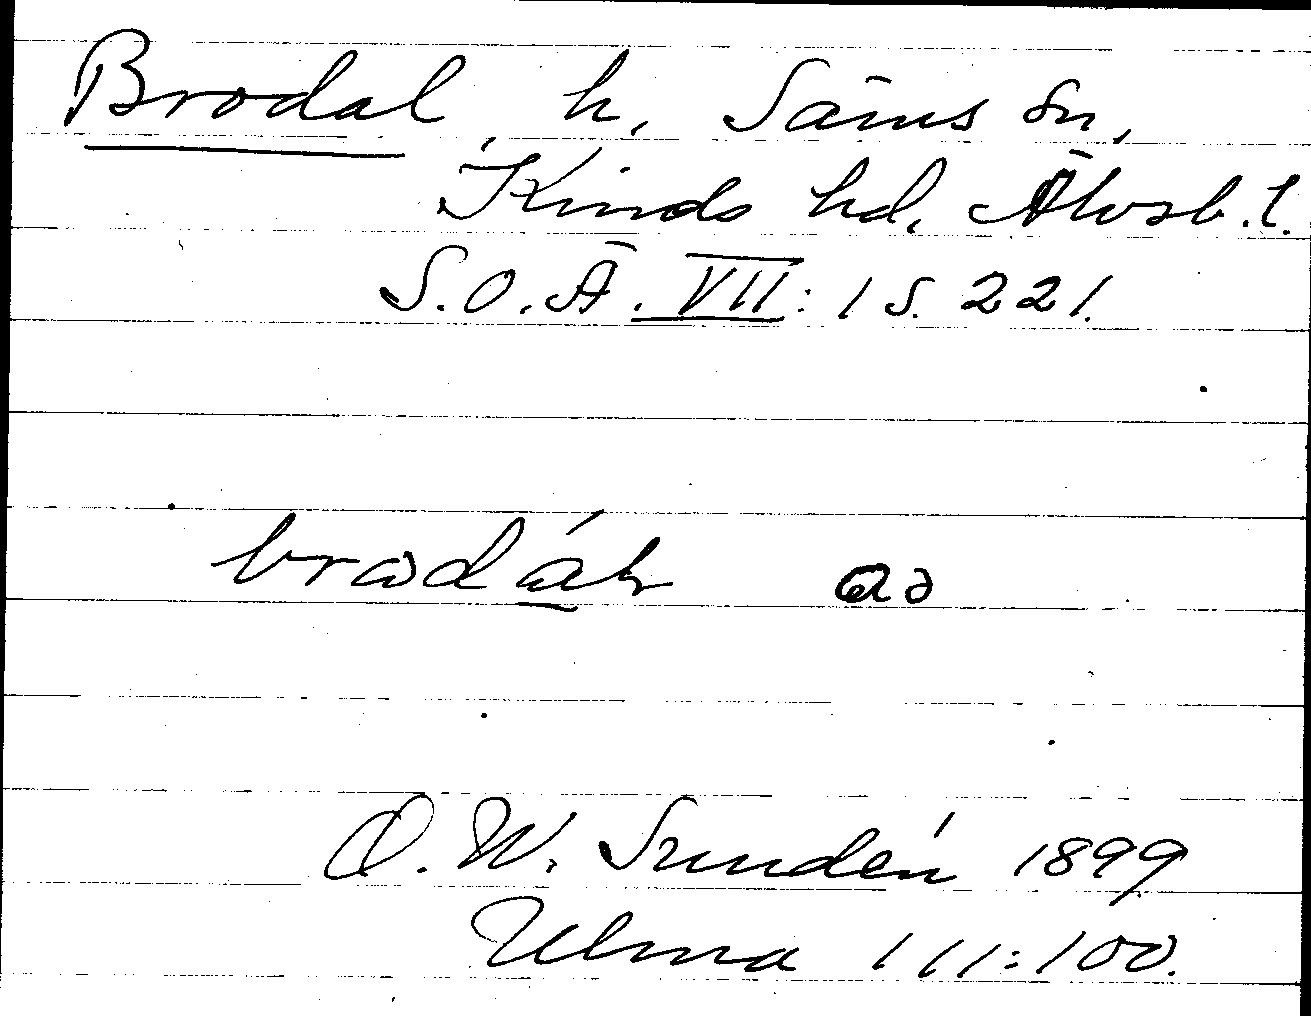 Brodal, h. Säms sn,
Kinds hd. Älvsb. l.
S.O.Ä. VII: 1 S. 221.
D. W. Sundén 1899
Ulma 111:100.